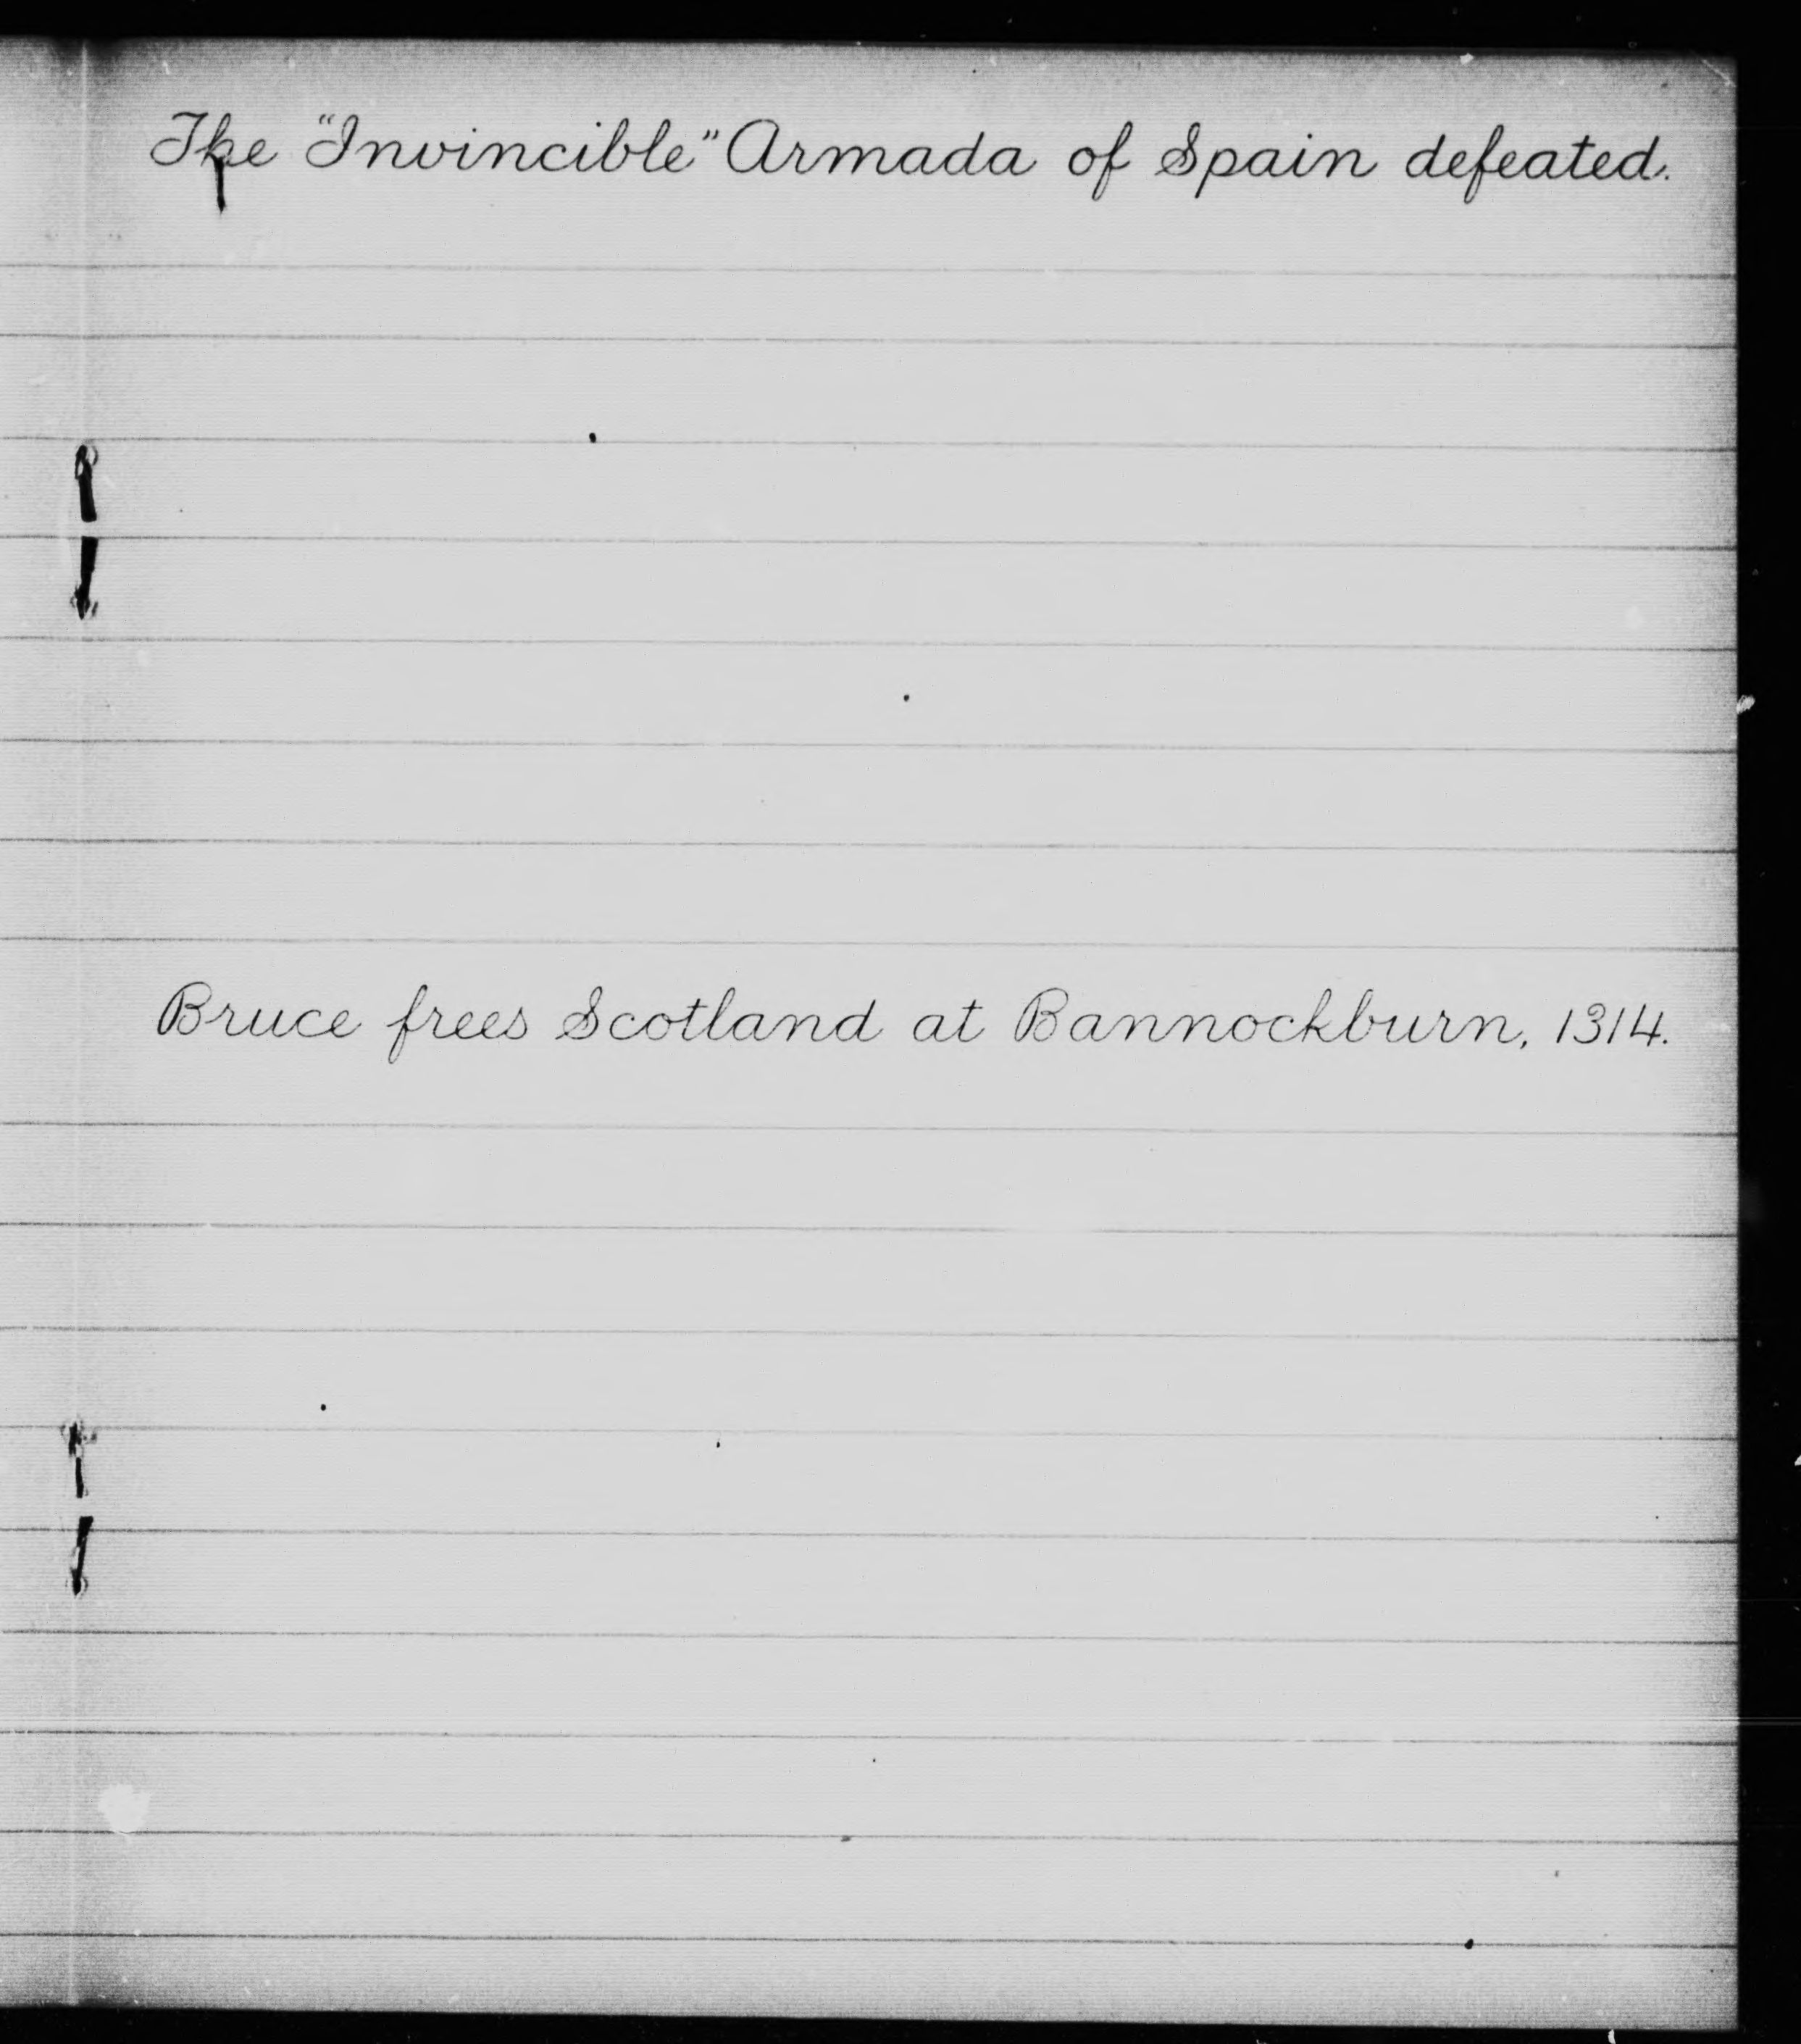 The "Invincible" Armada of Spain defeated.
Bruce frees Scotland at Bannockburn, 1314.